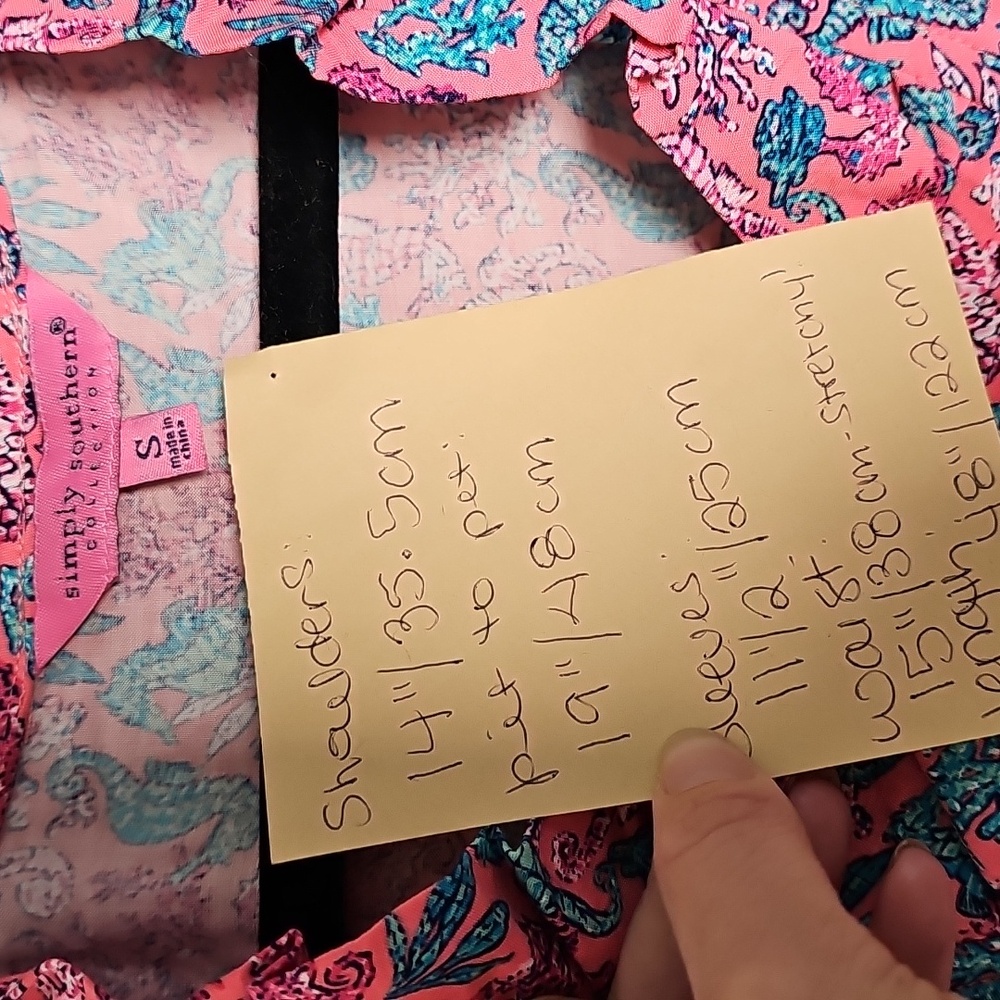 simply southern®
COLLECTION
S
made in
china
Shoulders:
14"|35.5cm
pit to pit:
19"|48cm
Sleeves:
11"/2"|25cm
waist:
15"|38cm-stretchy!
48"|122cm